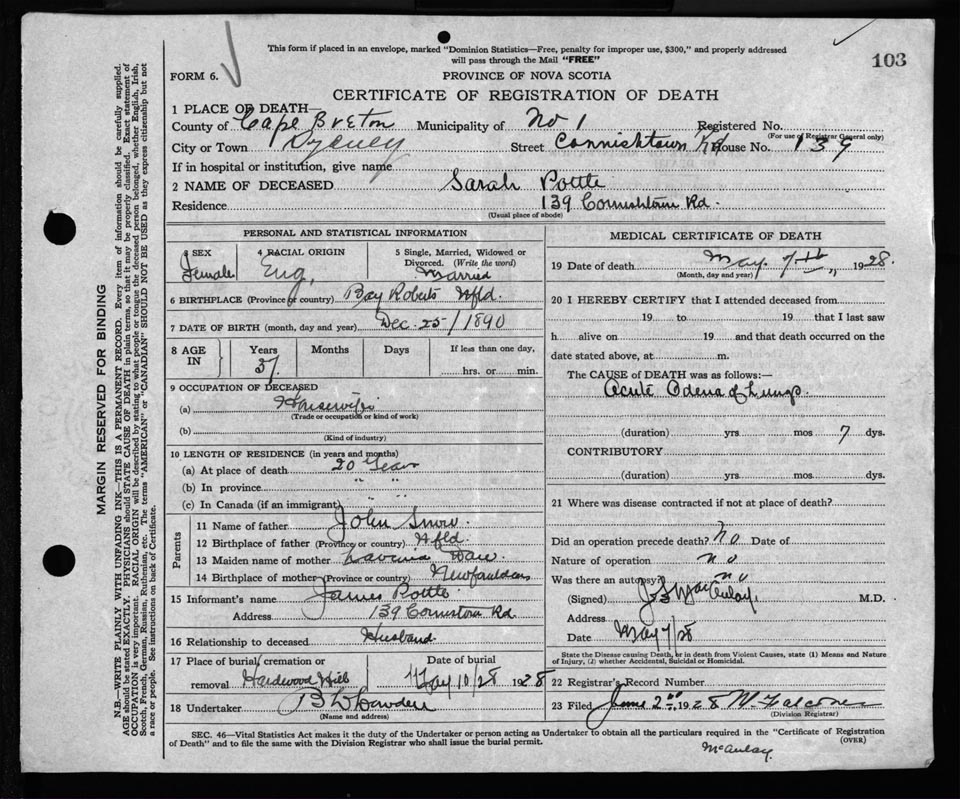 This form if placed in an envelope, marked "Dominion Statistics—Free, penalty for improper use, $300," and properly addressed
will pass through the Mail "FREE"
103
FORM 6.
PROVINCE OF NOVA SCOTIA
CERTIFICATE OF REGISTRATION OF DEATH
1 PLACE OF DEATH—
County of Cape Breton Municipality of No 1 Registered No.
(For use of Registrar General only)
City or Town Sydney Street Cornishtown Rd House No. 139
If in hospital or institution, give name
2 NAME OF DECEASED Sarah Pottle
Residence 139 Cornishtown Rd.
(Usual place of abode)
PERSONAL AND STATISTICAL INFORMATION
3 SEX Female
4 RACIAL ORIGIN Eng.
5 Single, Married, Widowed or
Divorced. (Write the word)
Married
6 BIRTHPLACE (Province or country) Bay Roberts Nfld.
7 DATE OF BIRTH (month, day and year) Dec. 25/1890
8 AGE IN Years Months Days If less than one day,
37 hrs. or min.
9 OCCUPATION OF DECEASED
(a) Housewife
(Trade or occupation or kind of work)
(b)
(Kind of industry)
10 LENGTH OF RESIDENCE (in years and months)
(a) At place of death 20 Years
(b) In province " "
(c) In Canada (if an immigrant) " "
Parents
11 Name of father John Snow.
12 Birthplace of father (Province or country) Nfld.
13 Maiden name of mother Lavenia Daw.
14 Birthplace of mother (Province or country)
15 Informant's name James Pottle
Address 139 Cornistown Rd
16 Relationship to deceased Husband
17 Place of burial, cremation or
removal Hardwood Hill
Date of burial
May 10/28 1928
18 Undertaker
(Name and address)
MEDICAL CERTIFICATE OF DEATH
19 Date of death May. 7th, 1928.
(Month, day and year)
20 I HEREBY CERTIFY that I attended deceased from
19 to 19 that I last saw
h alive on 19 and that death occurred on the
date stated above, at m.
The CAUSE of DEATH was as follows:—
Acute Odema of Lungs
(duration) yrs mos 7 dys.
CONTRIBUTORY
(duration) yrs mos dys.
21 Where was disease contracted if not at place of death?
Did an operation precede death? No Date of
Nature of operation no
Was there an autopsy? no
(Signed) MacAulay, M.D.
Address
Date May 7/28
State the Disease causing Death, or in death from Violent Causes, state (1) Means and Nature
of Injury, (2) whether Accidental, Suicidal or Homicidal.
22 Registrar's Record Number
23 Filed June 2nd, 1928
(Division Registrar)
SEC. 46—Vital Statistics Act makes it the duty of the Undertaker or person acting as Undertaker to obtain all the particulars required in the "Certificate of Registration
of Death" and to file the same with the Division Registrar who shall issue the burial permit.
(OVER)
McAulay.
MARGIN RESERVED FOR BINDING
N.B.—WRITE PLAINLY WITH UNFADING INK—THIS IS A PERMANENT RECORD. Every item of information should be carefully supplied.
AGE should be stated EXACTLY. PHYSICIANS should STATE CAUSE OF DEATH in plain terms, so that it may be properly classified. Exact statement of
OCCUPATION is very important. RACIAL ORIGIN will be described by stating to what people or tongue the deceased person belonged, whether English, Irish,
Scotch, French, German, Russian, Ruthenian, etc. The terms "AMERICAN" or "CANADIAN" SHOULD NOT BE USED as they express citizenship but not
a race or people. See instructions on back of Certificate.